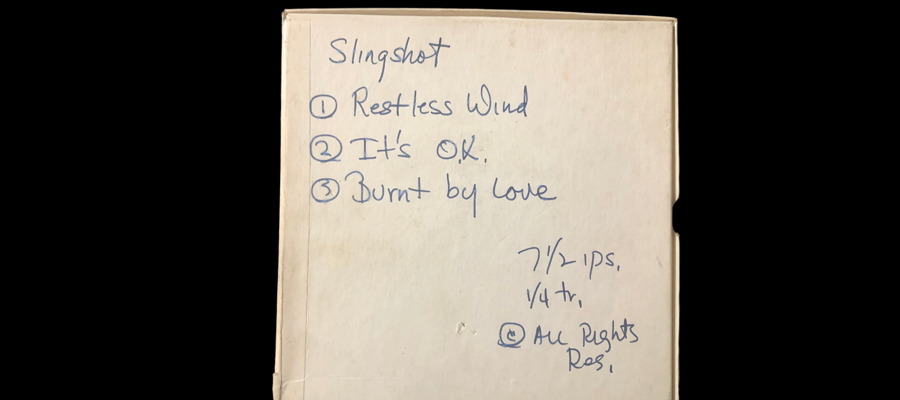 Slingshot
① Restless Wind
② It's O.K.
③ Burnt by Love
7 1/2 ips.
1/4 tr.
© All Rights
Res.